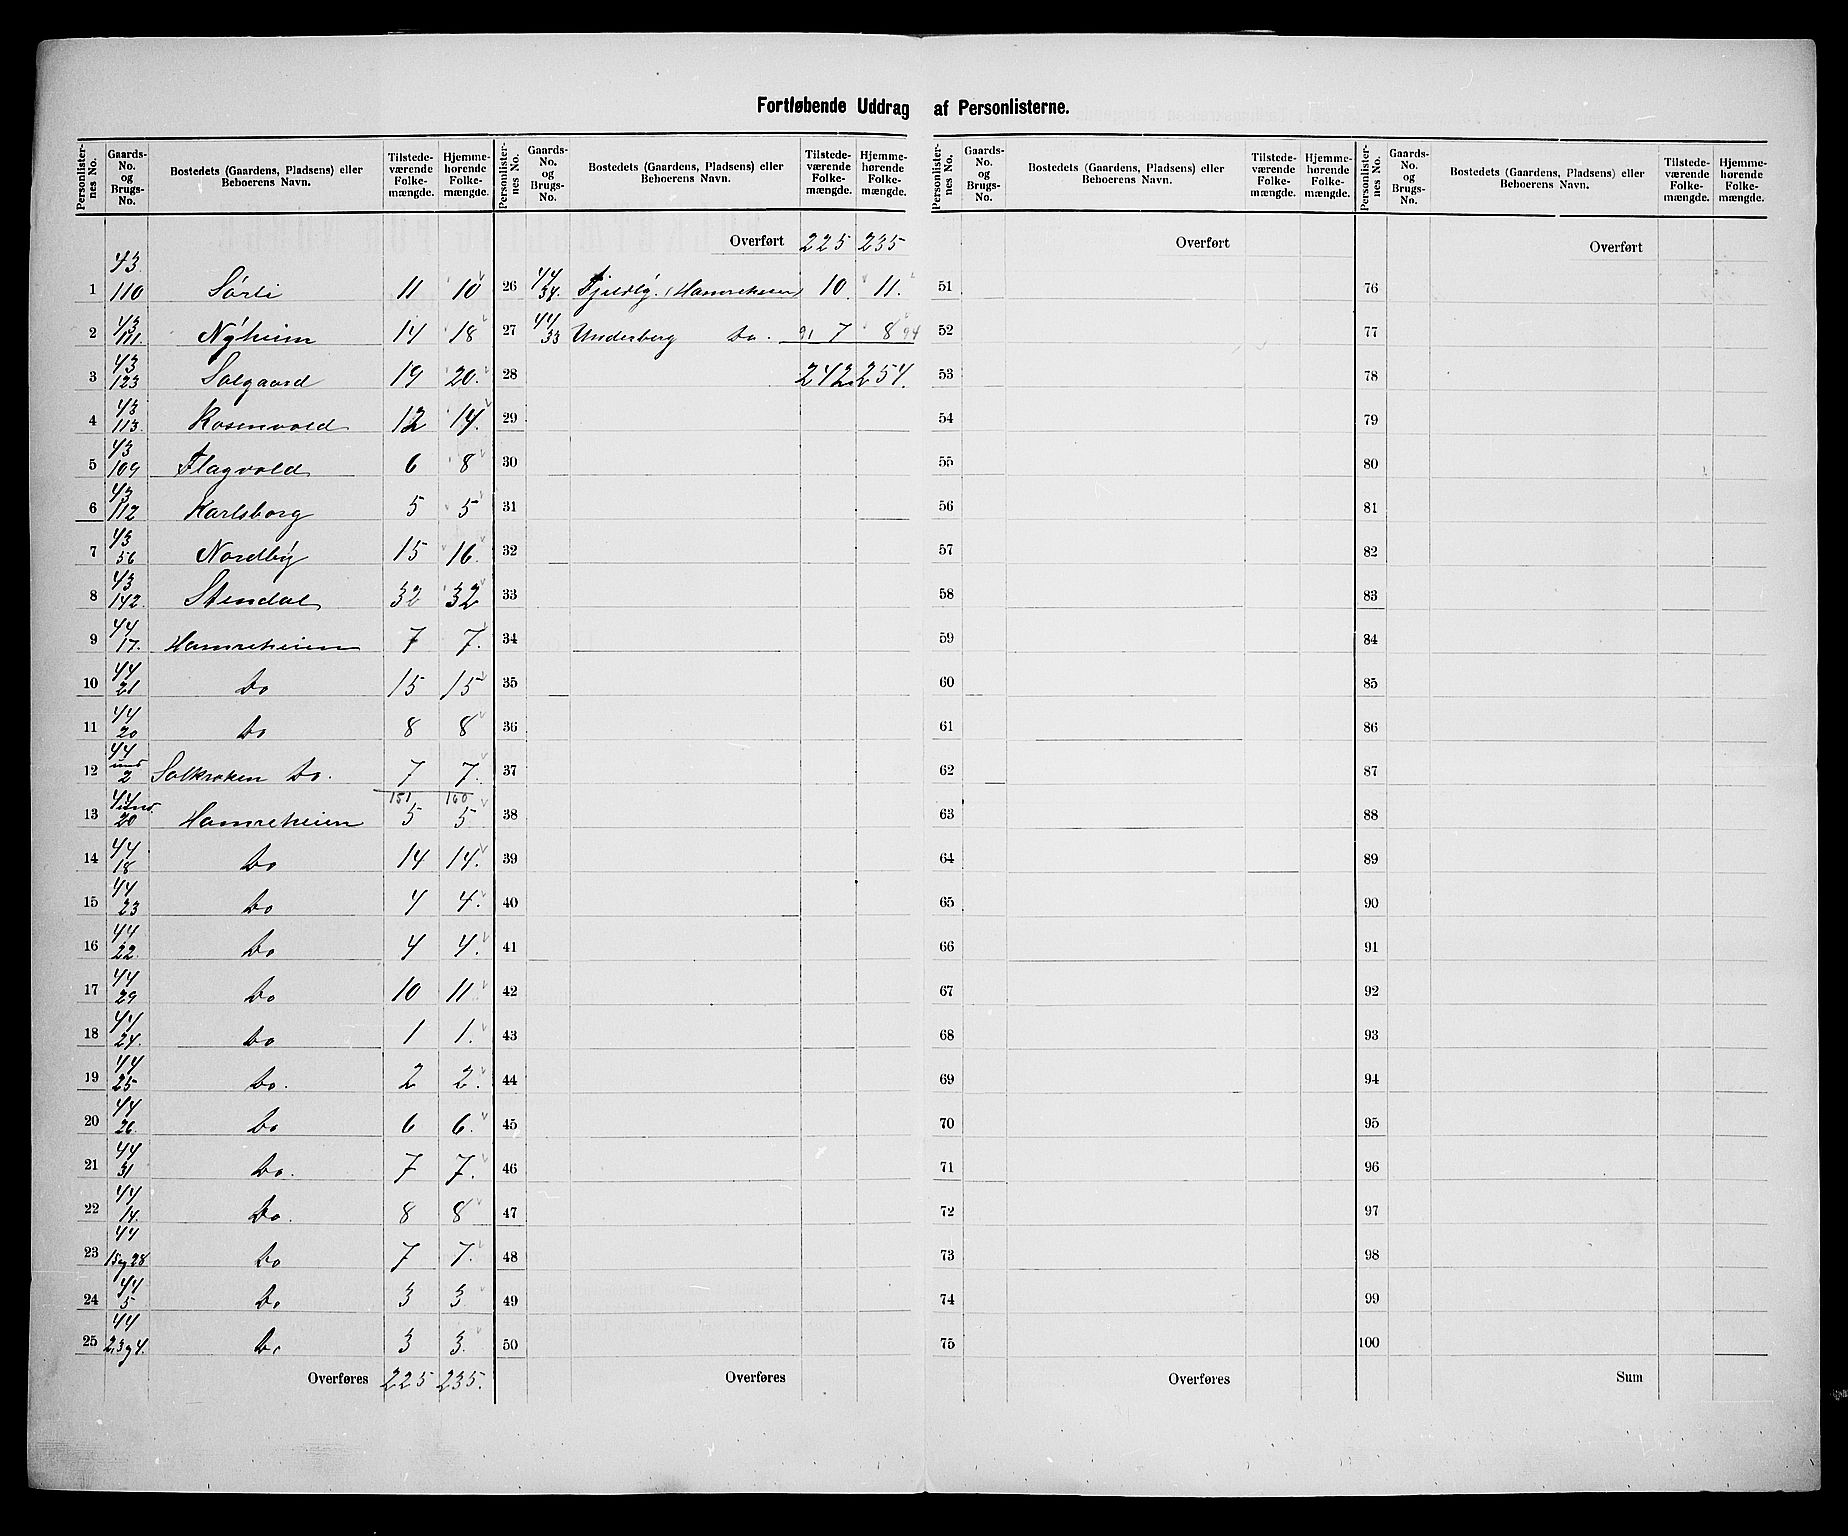 Fortløbende Uddrag af Personlisterne.
Personlister- nes No. | Gaards- No. og Brugs- No. | Bostedets (Gaardens, Pladsens) eller Beboerens Navn. | Tilstede- værende Folke- mængde. | Hjemme- hørende Folke- mængde.
1 | 43 110 | Sørli | 11 | 10
2 | 43 111. | Nyheim | 14 | 18
3 | 43 123 | Solgaard | 19 | 20.
4 | 43 113. | Rosenvold | 12 | 14.
5 | 43 109 | Flagvold | 6 | 8
6 | 43 112 | Karlsborg | 5 | 5
7 | 43 56 | Nordby | 15 | 16.
8 | 43 142. | Stendal | 32 | 32
9 | 44 17. | Hamreheien | 7 | 7.
10 | 44 21 | Do | 15 | 15
11 | 44 20 | Do | 8 | 8
12 | 44 und 2 | Solkroken Do. | 7 | 7.
151 | 160
13 | 44 und. 20 | Hamreheien | 5 | 5
14 | 44 18 | Do | 14 | 14.
15 | 44 23 | Do | 4 | 4.
16 | 44 22. | Do | 4 | 4.
17 | 44 29 | Do | 10 | 11.
18 | 44 24. | Do | 1 | 1.
19 | 44 25 | Do. | 2 | 2.
20 | 44 26. | Do | 6 | 6.
21 | 44 31 | Do. | 7 | 7.
22 | 44 14. | Do. | 8 | 8
23 | 44 15 og 28 | Do | 7 | 7.
24 | 44 5 | Do | 3 | 3
25 | 44 2,3 og 4. | Do | 3 | 3.
Overføres 225 235.
Personlister- nes No. | Gaards- No. og Brugs- No. | Bostedets (Gaardens, Pladsens) eller Beboerens Navn. | Tilstede- værende Folke- mængde. | Hjemme- hørende Folke- mængde.
Overført 225 235
26 | 44 34. | Fjeldly. (Hamreheien) | 10. | 11.
27 | 44 33 | Underberg Do. | 91 7 | 8 94
28 | 242 | 254.
29
30
31
32
33
34
35
36
37
38
39
40
41
42
43
44
45
46
47
48
49
50
Overføres
Personlister- nes No. | Gaards- No. og Brugs- No. | Bostedets (Gaardens, Pladsens) eller Beboerens Navn. | Tilstede- værende Folke- mængde. | Hjemme- hørende Folke- mængde.
Overført
51
52
53
54
55
56
57
58
59
60
61
62
63
64
65
66
67
68
69
70
71
72
73
74
75
Overføres
Personlister- nes No. | Gaards- No. og Brugs- No. | Bostedets (Gaardens, Pladsens) eller Beboerens Navn. | Tilstede- værende Folke- mængde. | Hjemme- hørende Folke- mængde.
Overført
76
77
78
79
80
81
82
83
84
85
86
87
88
89
90
91
92
93
94
95
96
97
98
99
100
Sum